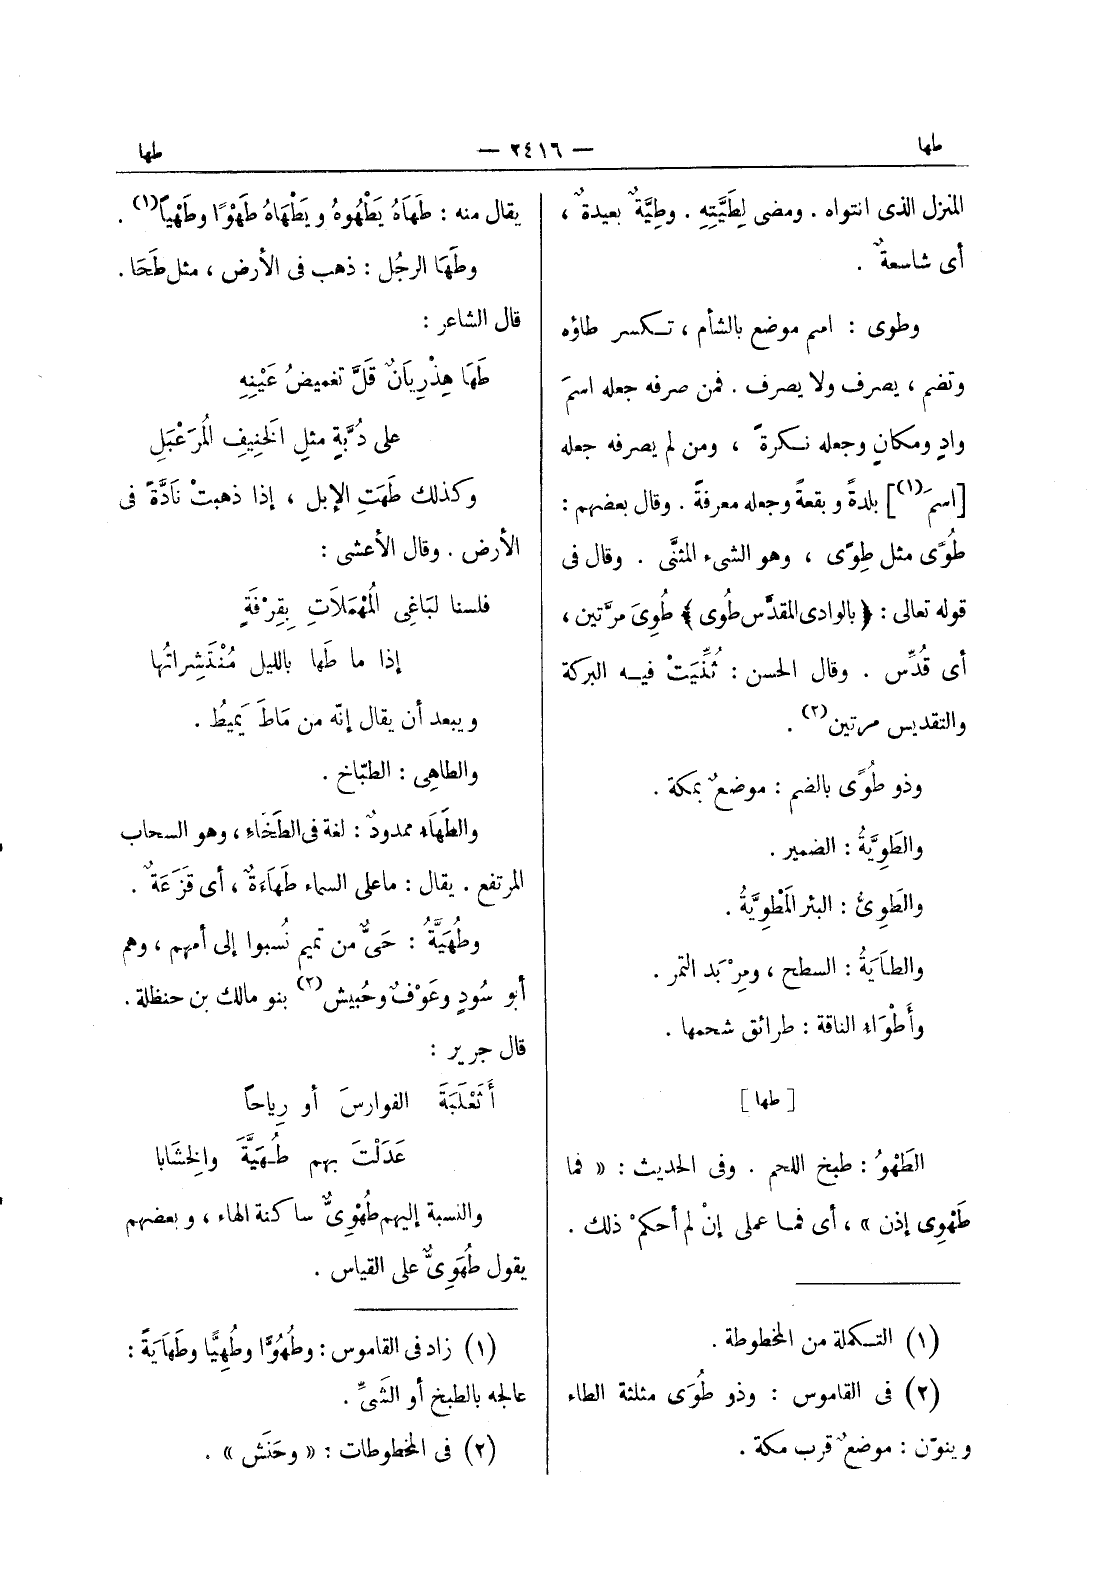 طها
— ٢٤١٦ —
طها
المنزل الذى انتواه . ومضى لِطَيَّتِهِ . وطِيَّةٌ بعيدةٌ ،
أى شاسعةٌ .
وطوى : اسم موضع بالشأم ، تكسر طاؤه
وتضم ، يصرف ولا يصرف . فمن صرفه جعله اسمَ
وادٍ ومكانٍ وجعله نكرةً ، ومن لم يصرفه جعله
[اسمَ(١)] بلدةً وبقعةً وجعله معرفةً . وقال بعضهم :
طُوًى مثل طِوًى ، وهو الشىء المثنَّى . وقال فى
قوله تعالى : ﴿ بالوادى المقدَّس طُوى ﴾ طُوِىَ مرَّتين ،
أى قُدِّس . وقال الحسن : ثُنِّيَتْ فيه البركة
والتقديس مرتين(٢) .
وذو طُوًى بالضم : موضعٌ بمكة .
والطَوِيَّةُ : الضمير .
والطَوِىُّ : البئر المَطْوِيَّةُ .
والطَايَةُ : السطح ، ومِرْبَد التمر .
وأَطْوَاءِ الناقة : طرائق شحمها .
[ طها ]
الطَهْوُ : طبخ اللحم . وفى الحديث : « فما
طَهْوِى إذن » ، أى فما عملى إنْ لم أحكمْ ذلك .
(١) التكملة من المخطوطة .
(٢) فى القاموس : وذو طُوَى مثلثة الطاء
وينوّن : موضعٌ قرب مكة .
يقال منه : طَهَاهُ يَطْهُوهُ ويَطْهَاهُ طَهْوًا وطَهْياً(١) .
وطَهَا الرجُل : ذهب فى الأرض ، مثل طَحَا .
قال الشاعر :
طَهَا هِذْرِيَانٌ قَلَّ تغميضُ عَيْنِهِ
على دُبَّةٍ مثلِ الخَنِيفِ المُرَعْبَلِ
وكذلك طَهَتِ الإبل ، إذا ذهبتْ نَادَّةً فى
الأرض . وقال الأعشى :
فلسنا لبَاغِى المُهْمَلاَتِ بِقِرْفَةٍ
إذا ما طَها بالليل مُنْتَشِراتُها
ويبعد أن يقال إنّه من مَاطَ يَمِيطُ .
والطاهِى : الطبّاخ .
والطَهَاء ممدودٌ : لغة فى الطَخَاءِ ، وهو السحاب
المرتفع . يقال : ما على السماء طَهَاءَةٌ ، أى قَزَعَةٌ .
وطُهَيَّةُ : حَىٌّ من تميم نُسبوا إلى أمهم ، وهم
أبو سُودٍ وعَوْفٌ وحُبيش(٢) بنو مالك بن حنظلة .
قال جرير :
أَثَعْلَبَةَ الفوارسَ أو رِياحاً
عَدَلْتَ بهم طُهَيَّةَ والخِشَابا
والنسبة إليهم طُهْوِىٌّ ساكنة الهاء ، وبعضهم
يقول طُهَوِىٌّ على القياس .
(١) زاد فى القاموس : وطُهُوًّا وطُهِيًّا وطَهَايَةً :
عالجه بالطبخ أو الشَىِّ .
(٢) فى المخطوطات : « وحَنَش » .